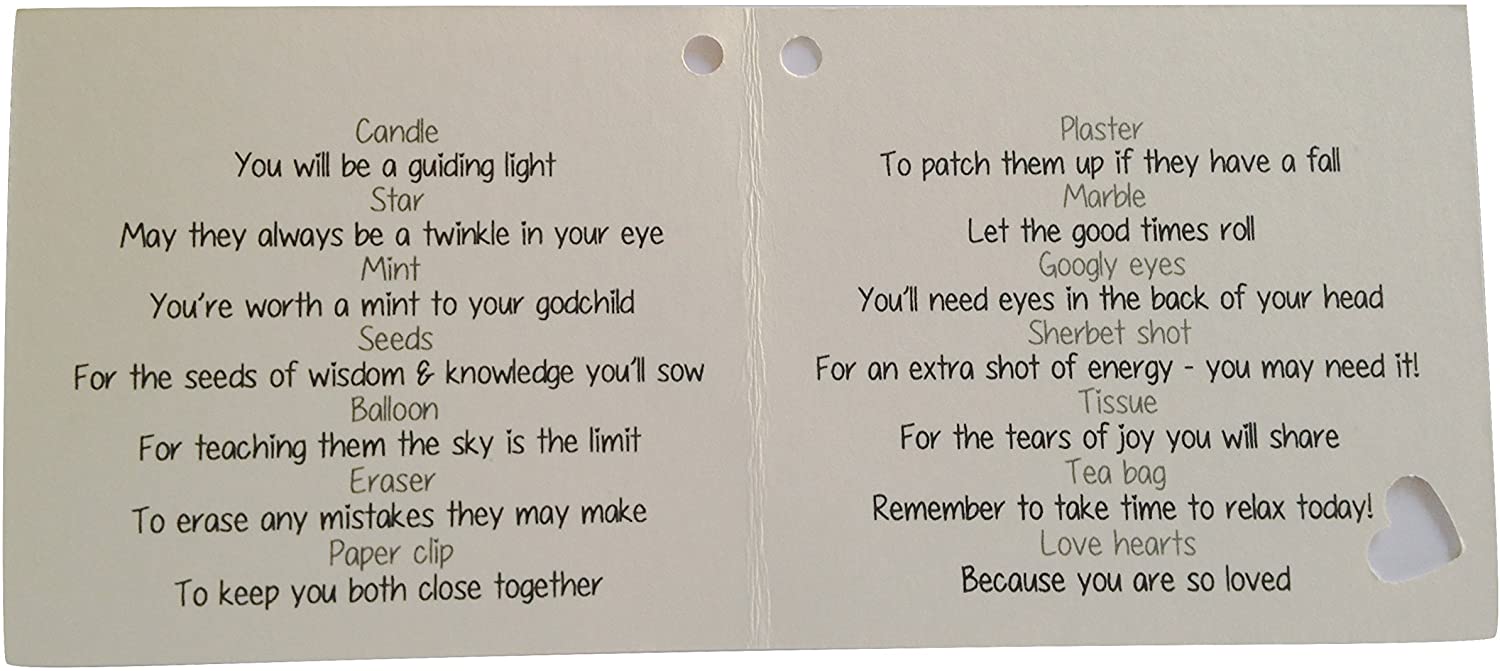 Candle
You will be a guiding light
Star
May they always be a twinkle in your eye
Mint
You're worth a mint to your godchild
Seeds
For the seeds of wisdom & knowledge you'll sow
Balloon
For teaching them the sky is the limit
Eraser
To erase any mistakes they may make
Paper clip
To keep you both close together
Plaster
To patch them up if they have a fall
Marble
Let the good times roll
Googly eyes
You'll need eyes in the back of your head
Sherbet shot
For an extra shot of energy - you may need it!
Tissue
For the tears of joy you will share
Tea bag
Remember to take time to relax today!
Love hearts
Because you are so loved